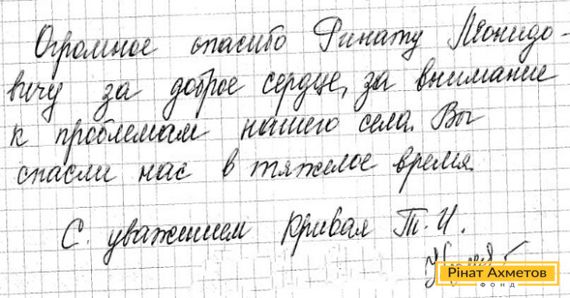 Огромное спасибо Ринату Леонидо-
вичу за доброе сердце, за внимание
к проблемам нашего села. Вы
спасли нас в тяжелое время.
С уважением Кривая Т.И.
Рінат Ахметов
ФОНД